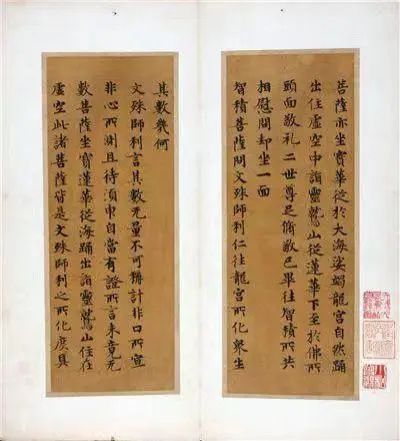 菩薩亦坐寶華從於大海娑竭龍宮自然踊
出住虛空中詣靈鷲山從蓮華下至於佛所
頭面敬礼二世尊足脩敬已畢往智積所共
相慰問却坐一面
智積菩薩問文殊師利仁往龍宮所化衆生
其數幾何
文殊師利言其數无量不可稱計非口所宣
非心所測且待須申自當有證所言未竟无
數菩薩坐寶蓮華從海踊出詣靈鷲山住在
虛空此諸菩薩皆是文殊師利之所化度具